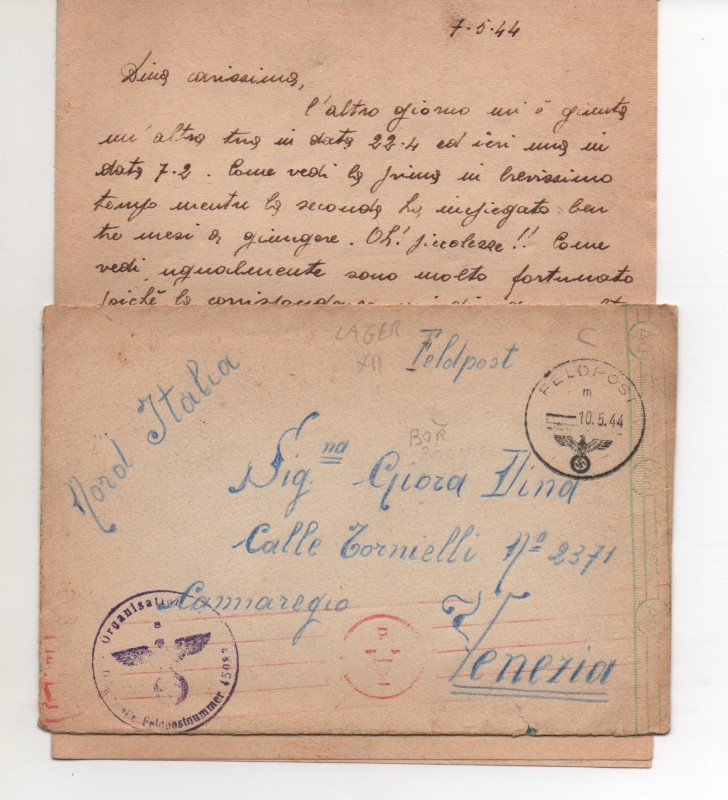 7.5.44
Dina carissima,
l'altro giorno mi è giunta
un'altra tua in data 22.4 ed ieri una in
data 7.2. Come vedi la prima in brevissimo
tempo mentre la seconda ha impiegato ben
tre mesi a giungere. Oh! piccolezze!! Come
vedi ugualmente sono molto fortunato
poichè la corrispondenza
LAGER
XII
C
Feldpost
Nord Italia
FELDPOST
m
10.5.44
BOR
Sig.na Giora Dina
Calle Tornielli No 2371
Cannaregio
Venezia
Organisation
Feldpostnummer 45083